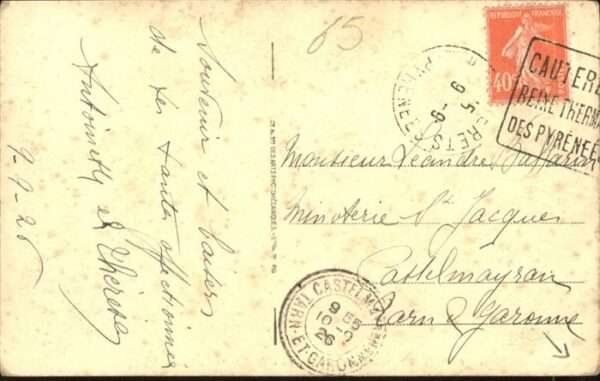 65
Souvenir et baisers
de tes tantes affectionnées
Antoinette et Thérèse
9-9-26
REPUBLIQUE FRANÇAISE
40
CAUTERE
REINE THERMA
DES PYRÉNÉE
Monsieur Léandre
Minoterie St Jacques
Castelmayran
Tarn & Garonne
CASTELMAYRAN
TARN-ET-GARONNE
10 - 9
26